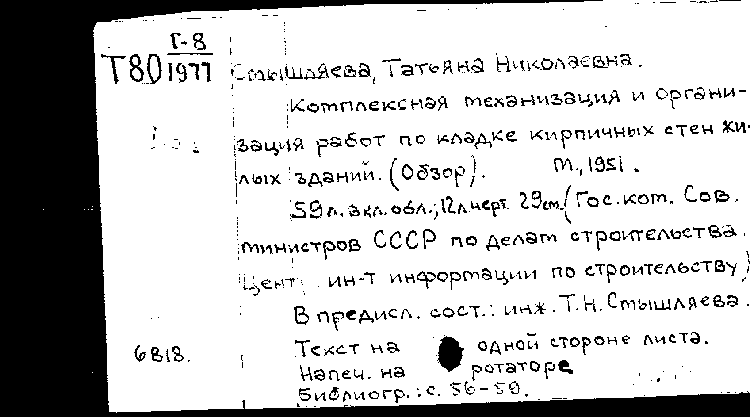 Г-8
Т80 1977 Смышляева, Татьяна Николаевна.
Комплексная механизация и органи-
зация работ по кладке кирпичных стен жи-
лых зданий. (Обзор). М., 1951.
59л. вкл. обл.; 12л. черт. 29см. (Гос. ком. Сов.
министров СССР по делам строительства.
Цент ин-т информации по строительству)
В предисл. сост.: инж. Т.Н. Смышляева.
6818. Текст на одной стороне листа.
Напеч. на ротаторе
Библиогр.: с. 56-59.